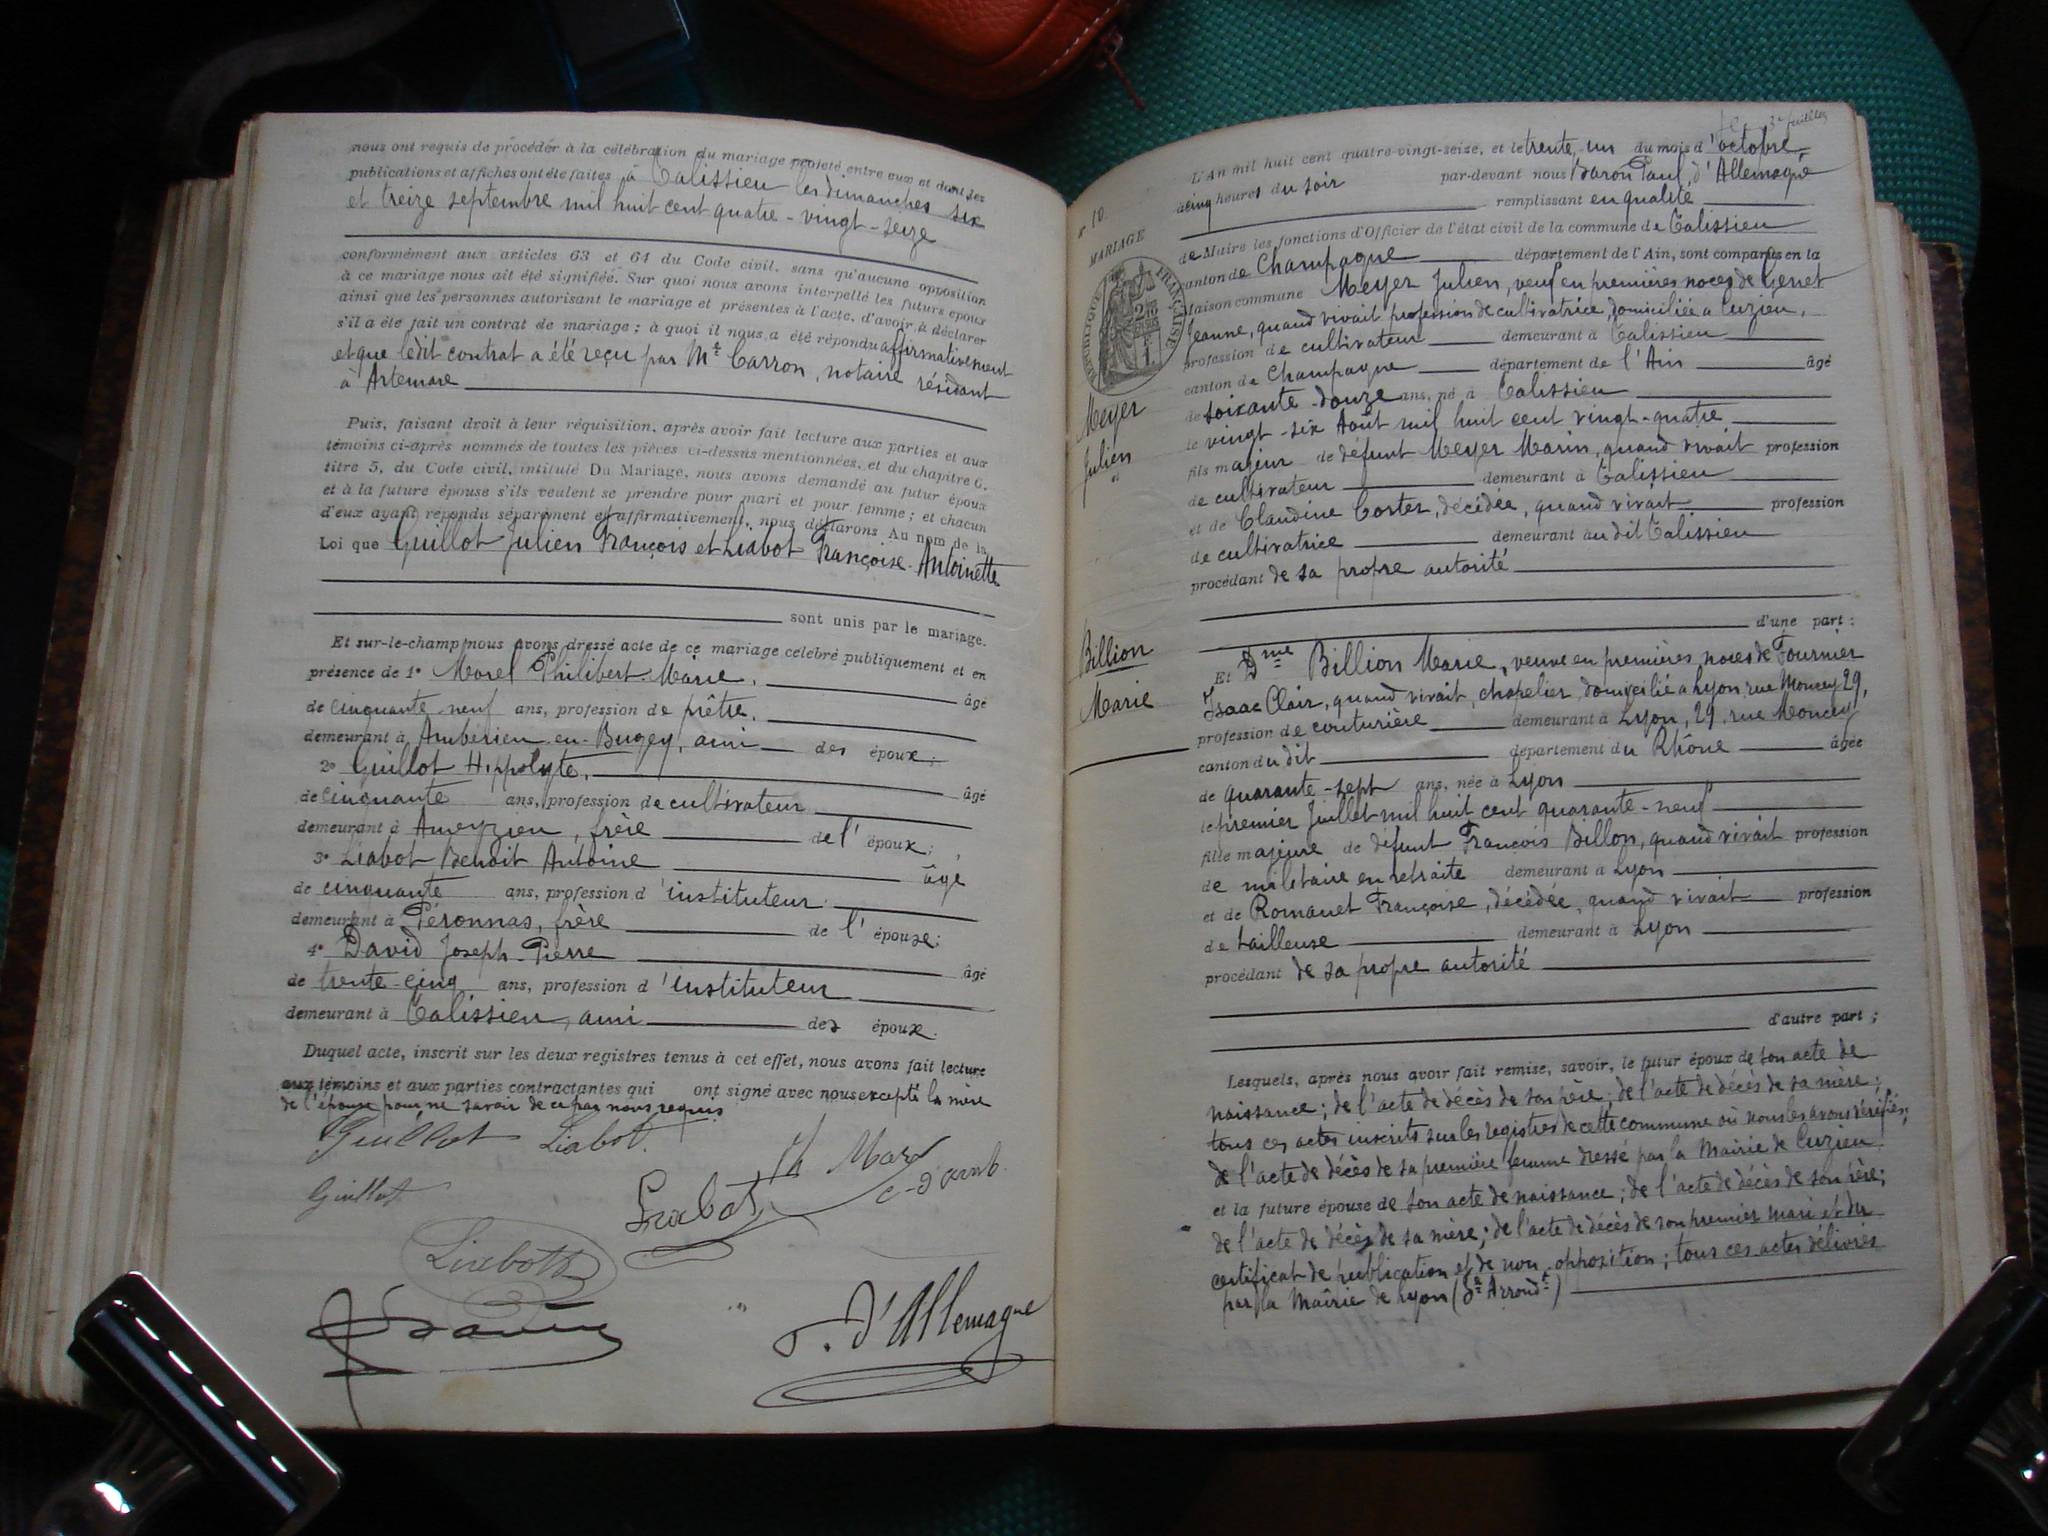 nous ont requis de procéder à la célébration du mariage projeté entre eux et dont les
publications et affiches ont été faites à Talissieu les dimanches six
et treize septembre mil huit cent quatre-vingt-seize
conformément aux articles 63 et 64 du Code civil, sans qu'aucune opposition
à ce mariage nous ait été signifiée. Sur quoi nous avons interpellé les futurs époux
ainsi que les personnes autorisant le mariage et présentes à l'acte, d'avoir à déclarer
s'il a été fait un contrat de mariage ; à quoi il nous a été répondu affirmativement
et que ledit contrat a été reçu par Me Carron, notaire résidant
à Artemare
Puis, faisant droit à leur réquisition, après avoir fait lecture aux parties et aux
témoins ci-après nommés de toutes les pièces ci-dessus mentionnées, et du chapitre 6,
titre 5, du Code civil, intitulé Du Mariage, nous avons demandé au futur époux
et à la future épouse s'ils veulent se prendre pour mari et pour femme ; et chacun
d'eux ayant répondu séparément et affirmativement, nous déclarons Au nom de la
Loi que Guillot Julien François et Liabot Françoise-Antoinette
sont unis par le mariage.
Et sur-le-champ nous avons dressé acte de ce mariage célébré publiquement et en
présence de 1° Morel Philibert-Marie, âgé
de cinquante neuf ans, profession de prêtre,
demeurant à Ambérieu-en-Bugey, ami des époux ;
2° Guillot Hippolyte, âgé
de cinquante ans, profession de cultivateur
demeurant à Ameyzieu, frère de l'époux ;
3° Liabot Benoit Antoine âgé
de cinquante ans, profession d'instituteur
demeurant à Péronnas, frère de l'épouse ;
4° David Joseph-Pierre âgé
de trente-cinq ans, profession d'instituteur
demeurant à Talissieu, ami des époux.
Duquel acte, inscrit sur les deux registres tenus à cet effet, nous avons fait lecture
aux témoins et aux parties contractantes qui ont signé avec nous excepté la mère
de l'épouse pour ne savoir de ce par nous requis
Guillot Liabot.
Guillot
Liabot
Liabot
David
P. d'Allemagne
L'An mil huit cent quatre-vingt-seize, et le trente un du mois d'octobre
à cinq heures du soir par-devant nous Baron Paul, d'Allemagne
remplissant en qualité
de Maire les fonctions d'Officier de l'état civil de la commune de Talissieu
canton de Champagne département de l'Ain, sont comparus en la
Maison commune Meyer Julien, veuf en premières noces de Genet
Jeanne, quand vivait profession de cultivatrice, domiciliée à Cuzieu,
profession de cultivateur demeurant à Talissieu
canton de Champagne département de l'Ain âgé
de soixante-douze ans, né à Talissieu
le vingt-six Août mil huit cent vingt-quatre
fils majeur de défunt Meyer Marin, quand vivait profession
de cultivateur demeurant à Talissieu
et de Claudine Cortez, décédée, quand vivait profession
de cultivatrice demeurant au dit Talissieu
procédant de sa propre autorité
d'une part ;
n° 10
MARIAGE
RÉPUBLIQUE FRANÇAISE
Meyer
Julien
et
Billion
Marie
Et Dme Billion Marie, veuve en premières noces de Fournier
Isaac Clair, quand vivait, chapelier domicilié à Lyon rue Moncey 29,
profession de couturière demeurant à Lyon, 29, rue Moncey
canton du dit département du Rhône âgée
de quarante-sept ans, née à Lyon
le premier Juillet mil huit cent quarante-neuf
fille majeure de défunt François Billon, quand vivait profession
de militaire en retraite demeurant à Lyon
et de Romanet Françoise, décédée, quand vivait profession
de tailleuse demeurant à Lyon
procédant de sa propre autorité
d'autre part ;
Lesquels, après nous avoir fait remise, savoir, le futur époux de son acte de
naissance ; de l'acte de décès de son père ; de l'acte de décès de sa mère ;
tous ces actes inscrits sur les registres de cette commune où nous les avons vérifiés ;
de l'acte de décès de sa première femme dressé par la Mairie de Cuzieu
et la future épouse de son acte de naissance ; de l'acte de décès de son père ;
de l'acte de décès de sa mère ; de l'acte de décès de son premier mari et du
certificat de publication et de non-opposition ; tous ces actes délivrés
par la Mairie de Lyon (3e Arrondt)